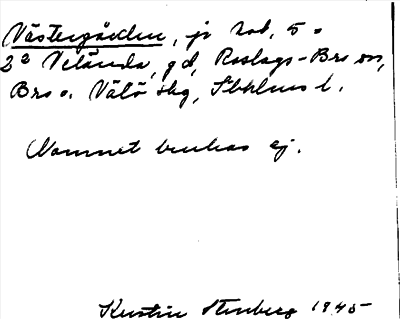 Västergården, jr kab, 5 o
2ª Velånda, gd, Roslags-Bro sn,
Bro o. Vätö skg, Sthlms l.
Namnet brukas ej.
Kerstin Stenberg 1945